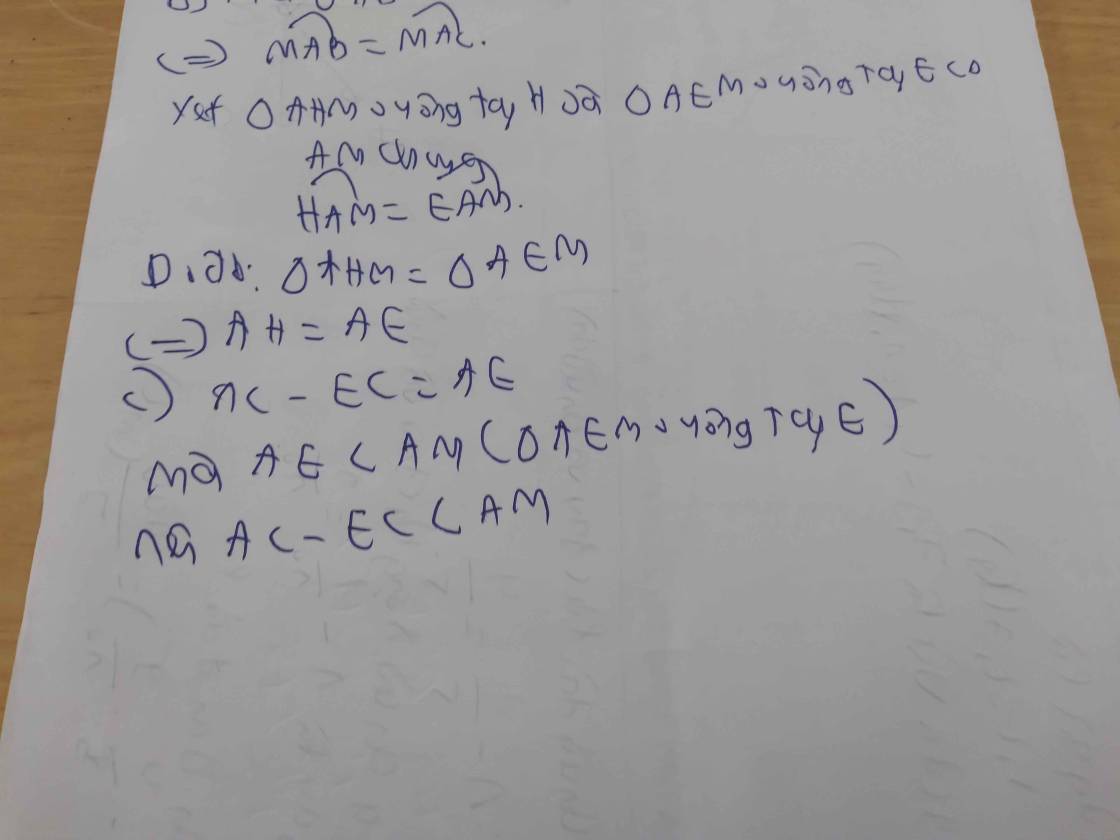 (=) MAB = MAC.
Xét Δ AHM vuông tại H và Δ AEM vuông tại E có
AM chung
HAM = EAM.
Dođó: Δ AHM = Δ AEM
(=) AH = AE
c) AC - EC = AE
mà AE < AM (Δ AEM vuông tại E)
nên AC - EC < AM